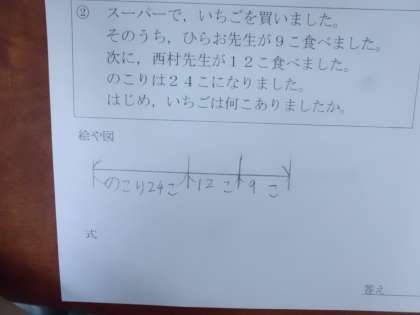 ② スーパーで，いちごを買いました。
そのうち，ひらお先生が９こ食べました。
次に，西村先生が１２こ食べました。
のこりは２４こになりました。
はじめ，いちごは何こありましたか。
絵や図
のこり24こ 12こ 9こ
式
答え